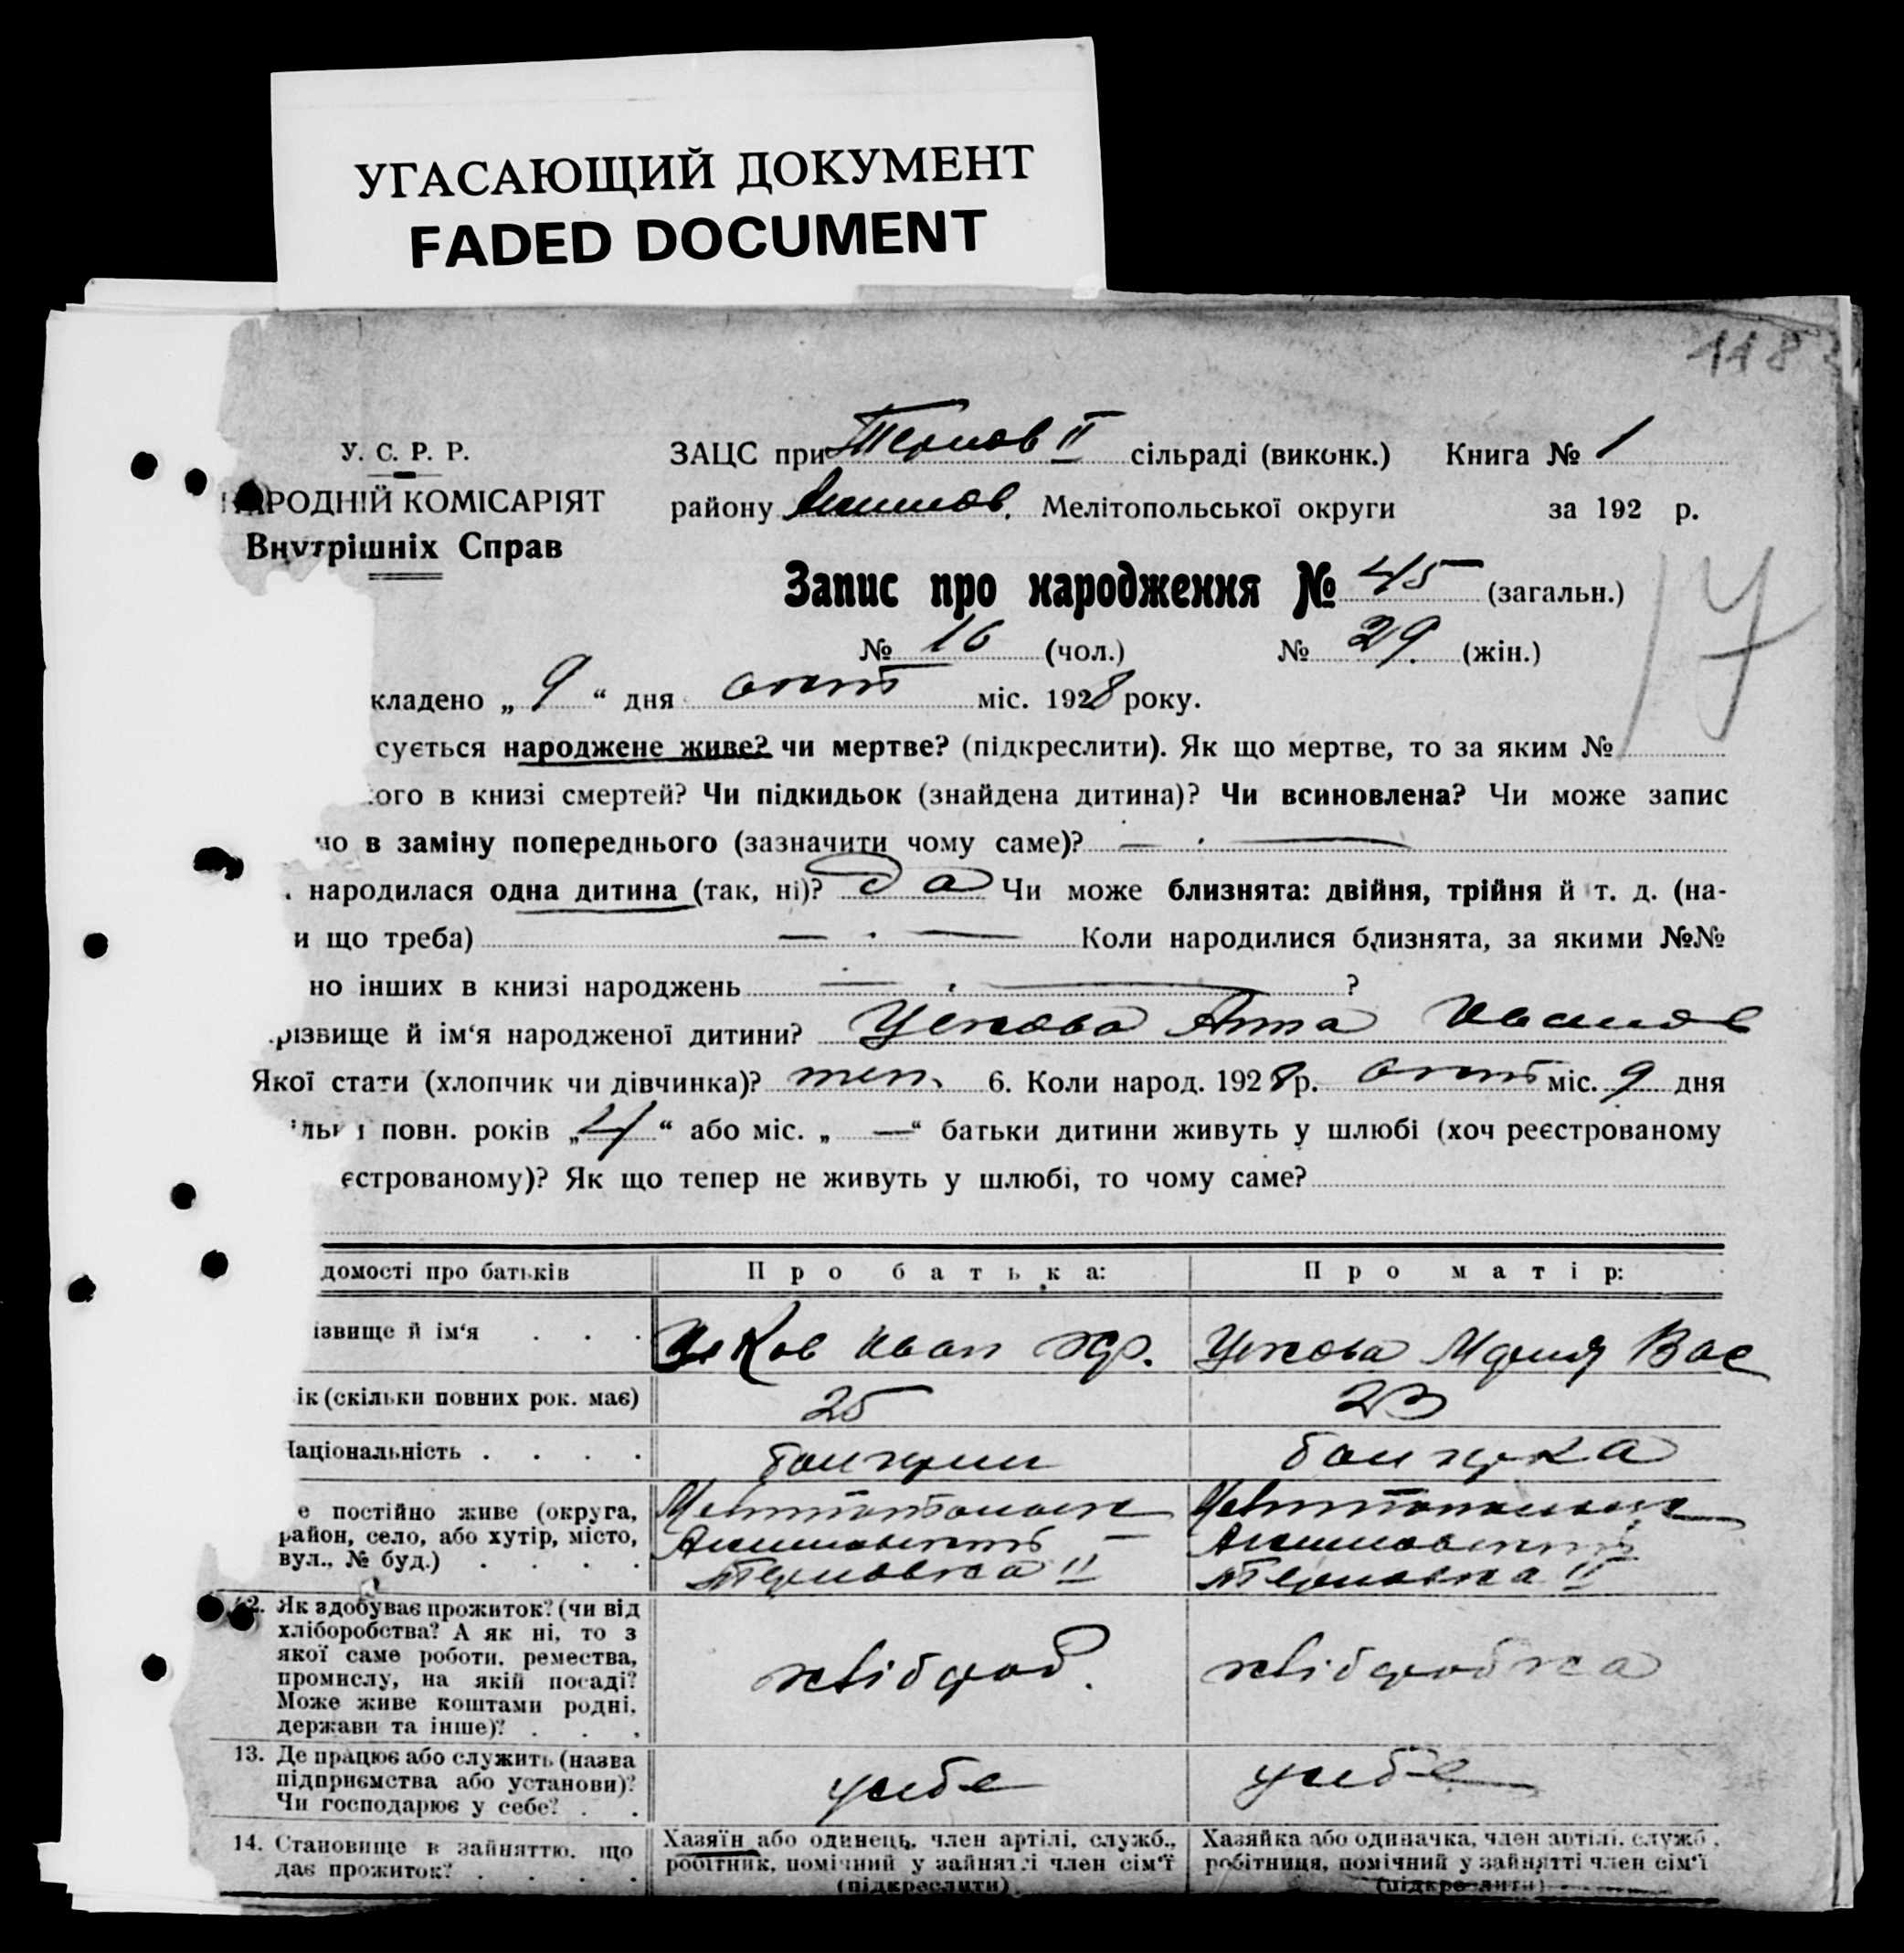 УГАСАЮЩИЙ ДОКУМЕНТ
FADED DOCUMENT
118
У. С. Р. Р.
НАРОДНІЙ КОМІСАРІЯТ
Внутрішніх Справ
ЗАЦС при Тернов II сільраді (виконк.) Книга № 1
району Акимов. Мелітопольської округи за 192 р.
17
Запис про народження № 45 (загальн.)
№ 16 (чол.) № 29 (жін.)
кладено „ 9 “ дня окт міс. 1928 року.
сується народжене живе? чи мертве? (підкреслити). Як що мертве, то за яким №
ого в книзі смертей? Чи підкидьок (знайдена дитина)? Чи всиновлена? Чи може запис
но в заміну попереднього (зазначити чому саме)? —
народилася одна дитина (так, ні)? да Чи може близнята: двійня, трійня й т. д. (на-
и що треба) — Коли народилися близнята, за якими №№
но інших в книзі народжень — ?
різвище й ім‘я народженої дитини? Цекова Анна Иванов
Якої стати (хлопчик чи дівчинка)? жен. 6. Коли народ. 1928 р. окт міс. 9 дня
льки повн. років „ 4 “ або міс. „ — “ батьки дитини живуть у шлюбі (хоч реєстрованому
єстрованому)? Як що тепер не живуть у шлюбі, то чому саме?
домості про батьків Про батька: Про матір:
ізвище й ім‘я . . . Цеков Иван Хр. Цекова Мария Вас
ік (скільки повних рок. має) 25 23
Національність . . . . болгрин болгрка
е постійно живе (округа,
район, село, або хутір, місто,
вул., № буд.) . . . .
Мелитопольск Мелитопольск
Акимовский Акимовский
Терновка II Терновка II
12. Як здобуває прожиток? (чи від
хліборобства? А як ні, то з
якої саме роботи, ремества,
промислу, на якій посаді?
Може живе коштами родні,
держави та інше)? . . .
хлібороб. хліборобка
13. Де працює або служить (назва
підприємства або установи)?
Чи господарює у себе? . .
усебе усебе
14. Становище в зайняттю, що
дає прожиток? . . . .
Хазяїн або одинець, член артілі, служб.,
робітник, помічний у зайнятті член сім‘ї
(підкреслити)
Хазяйка або одиначка, член артілі, служб.,
робітниця, помічний у зайнятті член сім‘ї
(підкреслити)